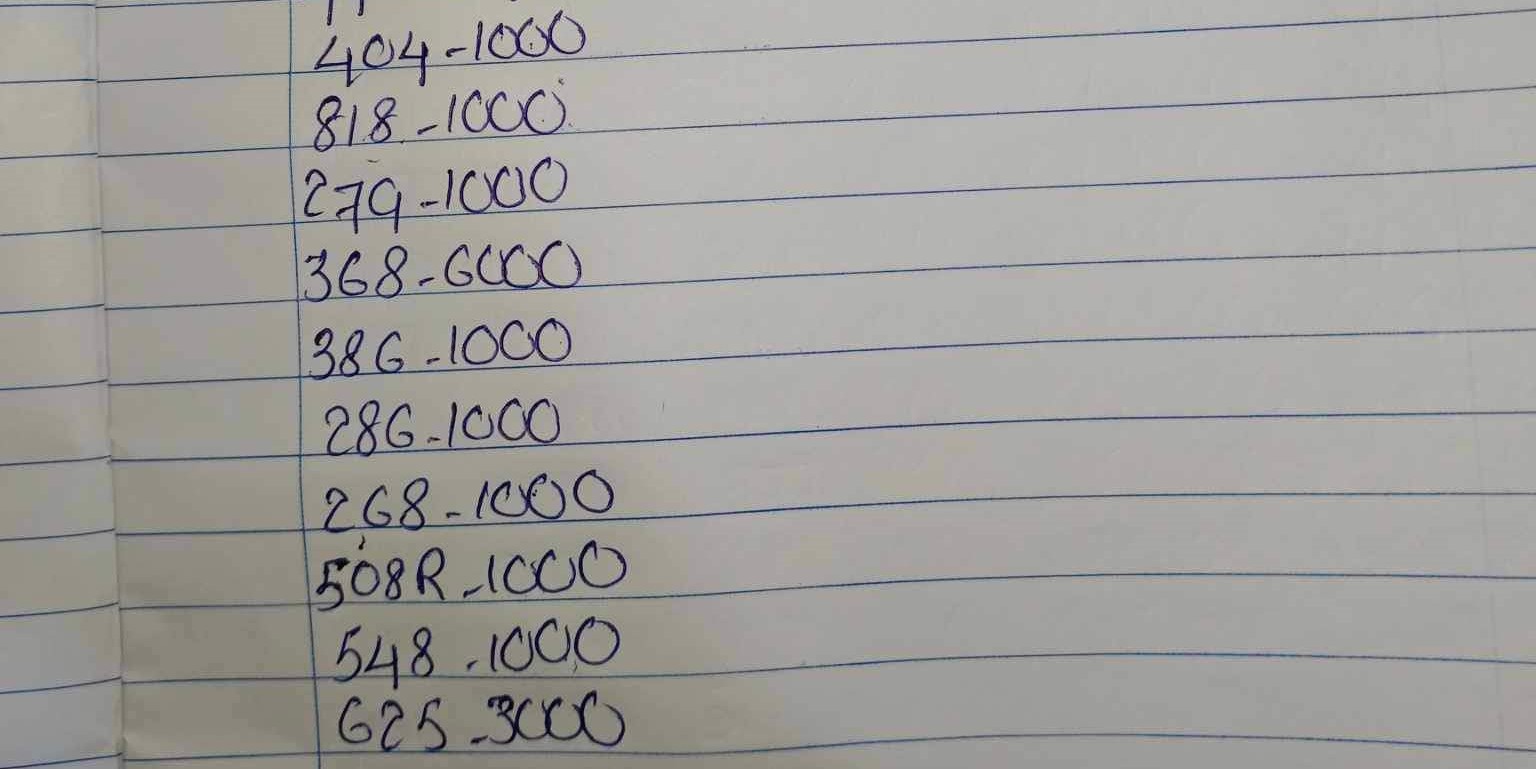 404-1000
818-1000
279-1000
368-6000
386-1000
286-1000
268-1000
508R-1000
548-1000
625-3000